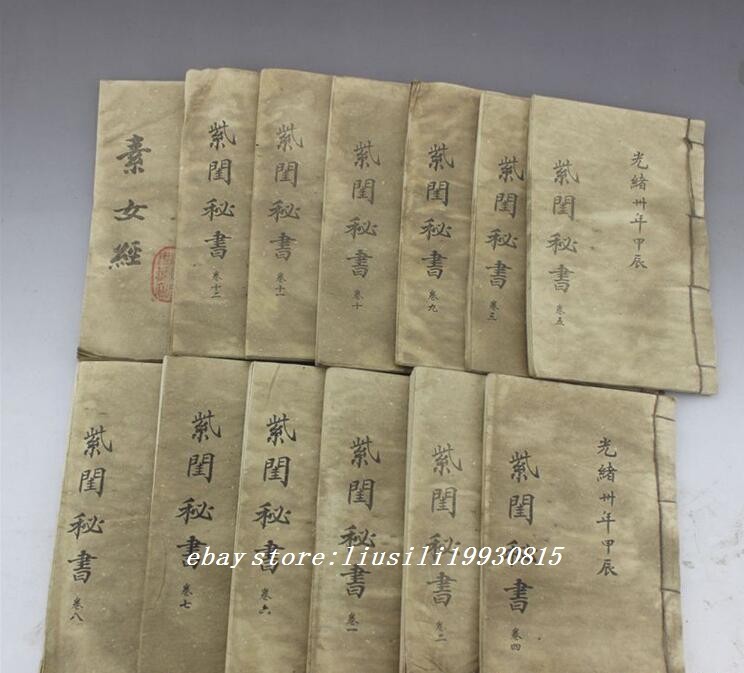 素女經
紫閨秘書
卷十二
紫閨秘書
卷十一
紫閨秘書
卷十
紫閨秘書
卷九
紫閨秘書
卷三
光緒卅年甲辰
紫閨秘書
卷五
紫閨秘書
卷八
紫閨秘書
卷七
紫閨秘書
卷六
紫閨秘書
卷一
紫閨秘書
卷二
光緒卅年甲辰
紫閨秘書
卷四
ebay store:liusili19930815